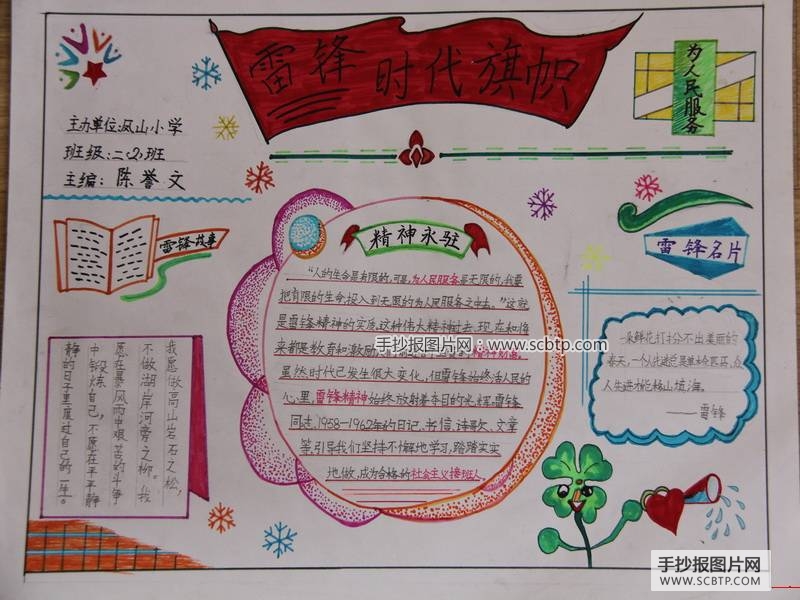 雷锋时代旗帜
为人民服务
主办单位:凤山小学
班级:二(2)班
主编:陈誉文
雷锋故事
精神永驻
雷锋名片
“人的生命是有限的,可是,为人民服务是无限的,我要
把有限的生命投入到无限的为人民服务之中去。”这就
是雷锋精神的实质,这种伟大精神过去、现在和将
来都是教育和激励
虽然时代已发生很大变化,但雷锋始终活人民的
心里,雷锋精神始终放射着夺目的光辉,雷锋
同志1958—1962年的日记、书信、诗歌、文章
等,引导我们坚持不懈地学习,踏踏实实
地做,成为合格的社会主义接班人。
我愿做高山岩石之松,
不做湖岸河旁之柳。我
愿在暴风雨中艰苦的斗争
中锻炼自己,不愿在平平静
静的日子里度过自己的一生。
一朵鲜花打扮不出美丽的
春天,一个人先进总是单
人先进才能移山填海。
——雷锋
手抄报图片网:www.scbtp.com
手抄报图片网
WWW.SCBTP.COM